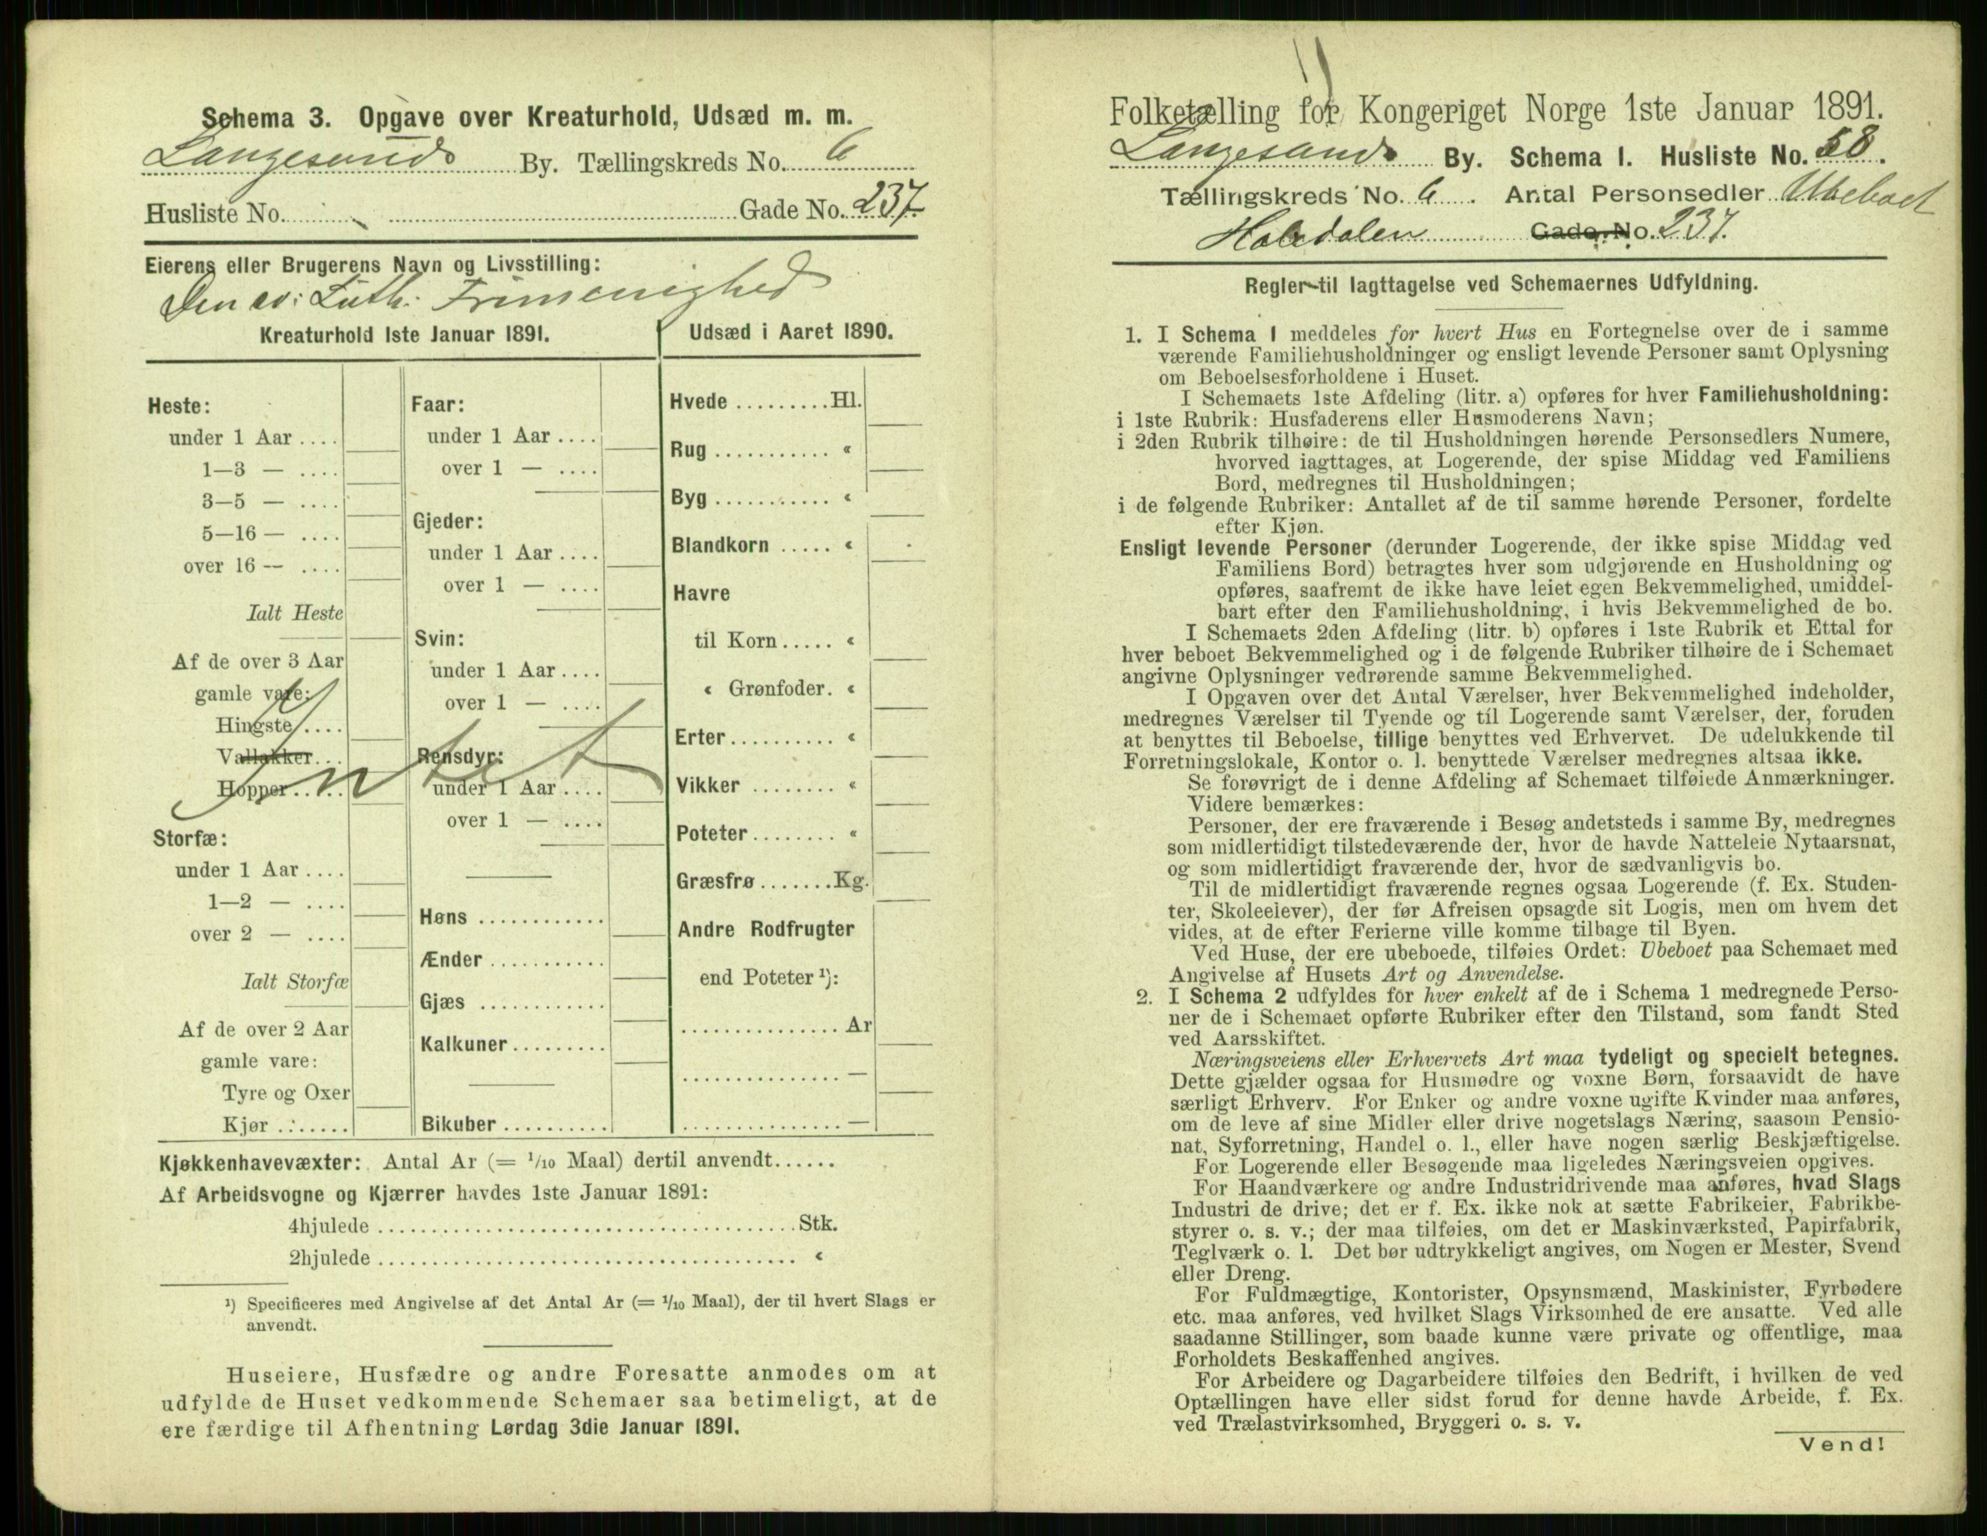 Schema 3. Opgave over Kreaturhold, Udsæd m. m.
Langesunds By. Tællingskreds No. 6
Husliste No. Gade No. 237.
Eierens eller Brugerens Navn og Livsstilling:
Den ev: Luth: Frimenighed
Kreaturhold 1ste Januar 1891.
Heste:
under 1 Aar ....
1—3 — ....
3—5 — ....
5—16 — ....
over 16 — ....
Ialt Heste
Af de over 3 Aar
gamle vare:
Hingste ....
Vallakker...
Hopper......
Intet
Storfæ:
under 1 Aar ....
1—2 — ....
over 2 — ....
Ialt Storfæ
Af de over 2 Aar
gamle vare:
Tyre og Oxer
Kjør .......
Faar:
under 1 Aar ....
over 1 — ....
Gjeder:
under 1 Aar ....
over 1 — ....
Svin:
under 1 Aar ....
over 1 — ....
Rensdyr:
under 1 Aar ....
over 1 — ....
Høns ............
Ænder ...........
Gjæs ............
Kalkuner .........
Bikuber ..........
Udsæd i Aaret 1890.
Hvede .........Hl.
Rug ........... «
Byg ........... «
Blandkorn ..... «
Havre
til Korn ..... «
« Grønfoder. «
Erter .......... «
Vikker ........ «
Poteter ........ «
Græsfrø .......Kg.
Andre Rodfrugter
end Poteter ¹):
............... Ar
............... —
............... —
Kjøkkenhavevæxter: Antal Ar (= 1/10 Maal) dertil anvendt......
Af Arbeidsvogne og Kjærrer havdes 1ste Januar 1891:
4hjulede ..................................... Stk.
2hjulede ..................................... «
¹) Specificeres med Angivelse af det Antal Ar (= 1/10 Maal), der til hvert Slags er
anvendt.
Huseiere, Husfædre og andre Foresatte anmodes om at
udfylde de Huset vedkommende Schemaer saa betimeligt, at de
ere færdige til Afhentning Lørdag 3die Januar 1891.
Folketælling for Kongeriget Norge 1ste Januar 1891.
Langesunds By. Schema 1. Husliste No. 58.
Tællingskreds No. 6. Antal Personsedler Ubeboet
Gade, No. 237.
Regler til Iagttagelse ved Schemaernes Udfyldning.
1. I Schema 1 meddeles for hvert Hus en Fortegnelse over de i samme
værende Familiehusholdninger og ensligt levende Personer samt Oplysning
om Beboelsesforholdene i Huset.
I Schemaets 1ste Afdeling (litr. a) opføres for hver Familiehusholdning:
i 1ste Rubrik: Husfaderens eller Husmoderens Navn;
i 2den Rubrik tilhøire: de til Husholdningen hørende Personsedlers Numere,
hvorved iagttages, at Logerende, der spise Middag ved Familiens
Bord, medregnes til Husholdningen;
i de følgende Rubriker: Antallet af de til samme hørende Personer, fordelte
efter Kjøn.
Ensligt levende Personer (derunder Logerende, der ikke spise Middag ved
Familiens Bord) betragtes hver som udgjørende en Husholdning og
opføres, saafremt de ikke have leiet egen Bekvemmelighed, umiddel-
bart efter den Familiehusholdning, i hvis Bekvemmelighed de bo.
I Schemaets 2den Afdeling (litr. b) opføres i 1ste Rubrik et Ettal for
hver beboet Bekvemmelighed og i de følgende Rubriker tilhøire de i Schemaet
angivne Oplysninger vedrørende samme Bekvemmelighed.
I Opgaven over det Antal Værelser, hver Bekvemmelighed indeholder,
medregnes Værelser til Tyende og til Logerende samt Værelser, der, foruden
at benyttes til Beboelse, tillige benyttes ved Erhvervet. De udelukkende til
Forretningslokale, Kontor o. l. benyttede Værelser medregnes altsaa ikke.
Se forøvrigt de i denne Afdeling af Schemaet tilføiede Anmærkninger.
Videre bemærkes:
Personer, der ere fraværende i Besøg andetsteds i samme By, medregnes
som midlertidigt tilstedeværende der, hvor de havde Natteleie Nytaarsnat,
og som midlertidigt fraværende der, hvor de sædvanligvis bo.
Til de midlertidigt fraværende regnes ogsaa Logerende (f. Ex. Studen-
ter, Skoleelever), der før Afreisen opsagde sit Logis, men om hvem det
vides, at de efter Ferierne ville komme tilbage til Byen.
Ved Huse, der ere ubeboede, tilføies Ordet: Ubeboet paa Schemaet med
Angivelse af Husets Art og Anvendelse.
2. I Schema 2 udfyldes for hver enkelt af de i Schema 1 medregnede Perso-
ner de i Schemaet opførte Rubriker efter den Tilstand, som fandt Sted
ved Aarsskiftet.
Næringsveiens eller Erhvervets Art maa tydeligt og specielt betegnes.
Dette gjælder ogsaa for Husmødre og voxne Børn, forsaavidt de have
særligt Erhverv. For Enker og andre voxne ugifte Kvinder maa anføres,
om de leve af sine Midler eller drive nogetslags Næring, saasom Pensio-
nat, Syforretning, Handel o. l., eller have nogen særlig Beskjæftigelse.
For Logerende eller Besøgende maa ligeledes Næringsveien opgives.
For Haandværkere og andre Industridrivende maa anføres, hvad Slags
Industri de drive; det er f. Ex. ikke nok at sætte Fabrikeier, Fabrikbe-
styrer o. s. v.; der maa tilføies, om det er Maskinværksted, Papirfabrik,
Teglværk o. l. Det bør udtrykkeligt angives, om Nogen er Mester, Svend
eller Dreng.
For Fuldmægtige, Kontorister, Opsynsmænd, Maskinister, Fyrbødere
etc. maa anføres, ved hvilket Slags Virksomhed de ere ansatte. Ved alle
saadanne Stillinger, som baade kunne være private og offentlige, maa
Forholdets Beskaffenhed angives.
For Arbeidere og Dagarbeidere tilføies den Bedrift, i hvilken de ved
Optællingen have eller sidst forud for denne havde Arbeide, f. Ex.
ved Trælastvirksomhed, Bryggeri o. s. v.
Vend!